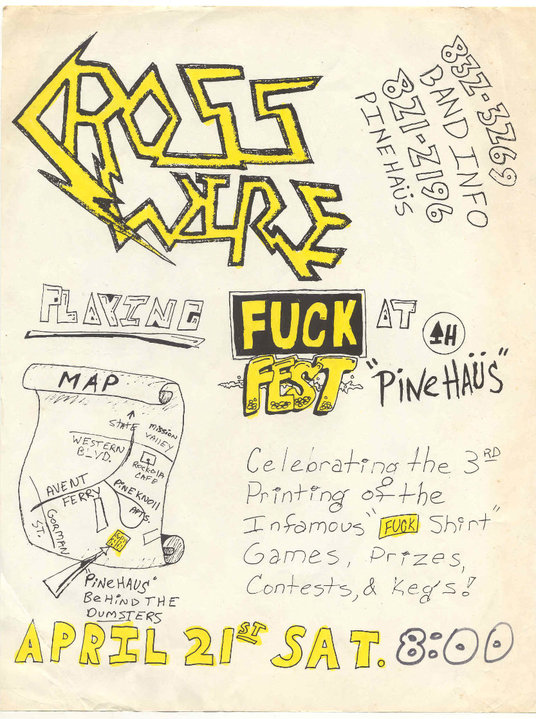 CROSS
WIRE
832-3269
BAND INFO
821-2196
PINEHAÜS
PLAYING
FUCK
FEST
AT
H
"PiNEHAÜS"
MAP
STATE
MISSION
VALLEY
WESTERN
BLVD.
ROCKOLA
CAFE
AVENT
FERRY
PINE KNOLL
APTS.
GORMAN
ST.
"PINEHAUS"
BEHiND THE
DUMSTERS
Celebrating the 3RD
Printing of the
Infamous "FUCK Shirt"
Games, Prizes,
Contests, & Keg's!
APRIL 21ST SAT. 8:00